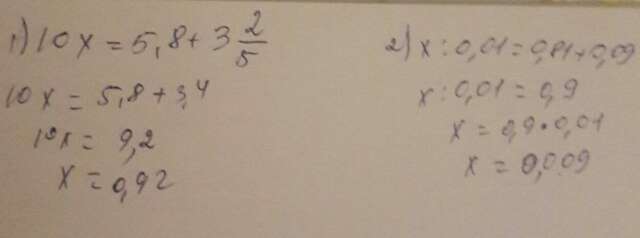 1) 10x = 5,8 + 3 2/5
10x = 5,8 + 3,4
10x = 9,2
x = 0,92
2) x : 0,01 = 0,81 + 0,09
x : 0,01 = 0,9
x = 0,9 • 0,01
x = 0,009